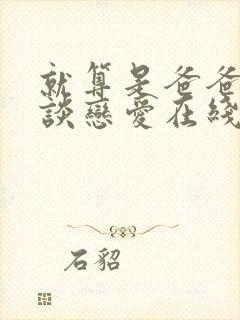 就算是爸爸
談戀愛在綫
石貂